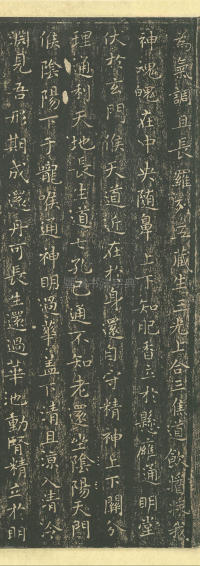 為氣調且長羅列五藏生三光上合三焦道飲醬漿我
神魂魄在中央随鼻上下知肥香立於懸雍通明堂
伏於玄門候天道近在於身還自守精神上下關分
理通利天地長生道七孔已通不知老還坐陰陽天門
候陰陽下于嚨喉通神明過華盖下清且涼入清泠
淵見吾形期成還丹可長生還過華池動腎精立於明